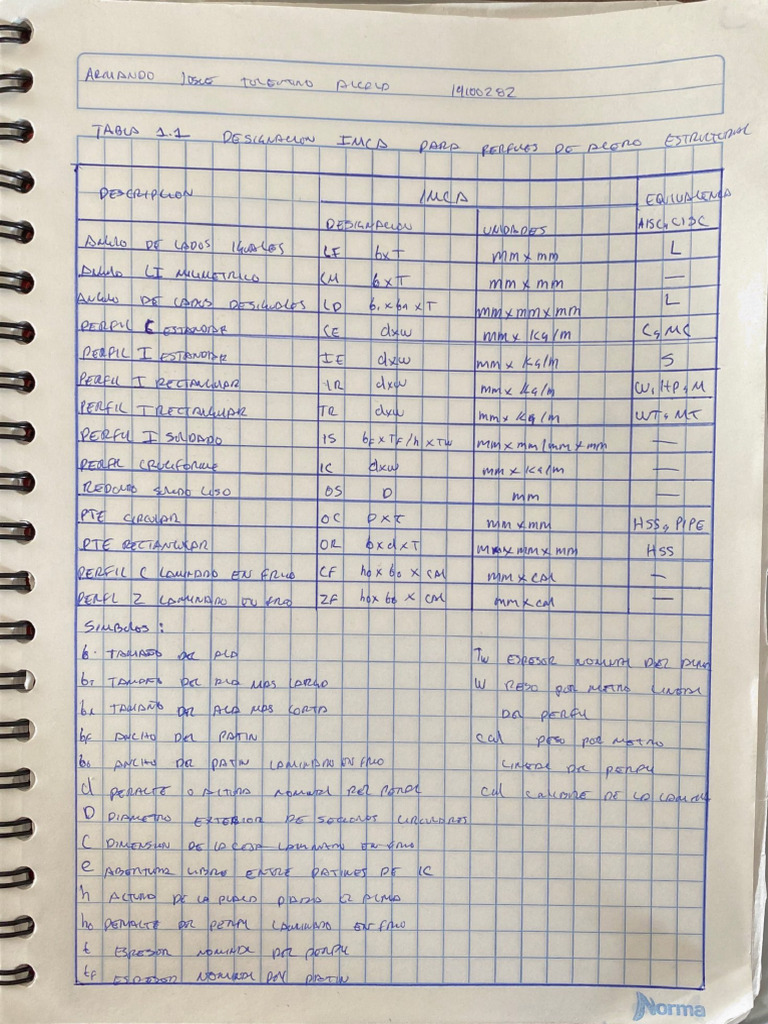 ARMANDO JOSE TOLENTINO ALCALA 19100282
TABLA 1.1 DESIGNACION IMCA PARA PERFILES DE ACERO ESTRUCTURAL
DESCRIPCION IMCA EQUIVALENCIA
DESIGNACION UNIDADES AISC, CISC
ANGULO DE LADOS IGUALES LI b x T mm x mm L
ANGULO LI MILIMETRICO LM b x T mm x mm —
ANGULO DE LADOS DESIGUALES LD b1 x bn x T mm x mm x mm L
PERFIL C ESTANDAR CE d x w mm x Kg/m C, MC
PERFIL I ESTANDAR IE d x w mm x Kg/m S
PERFIL I RECTANGULAR IR d x w mm x Kg/m W, HP, M
PERFIL T RECTANGULAR TR d x w mm x Kg/m WT, MT
PERFIL I SOLDADO IS bf x Tf / h x Tw mm x mm / mm x mm —
PERFIL CRUCIFORME IC d x w mm x Kg/m —
REDONDO SOLIDO LISO OS D mm —
PTE CIRCULAR OC D x T mm x mm HSS, PIPE
PTE RECTANGULAR OR b x d x T mm x mm x mm HSS
PERFIL C LAMINADO EN FRIO CF ho x bo x CAL mm x CAL —
PERFIL Z LAMINADO EN FRIO ZF ho x bo x CAL mm x cal —
SIMBOLOS:
b. TAMAÑO DEL ALA
b1 TAMAÑO DEL ALA MAS LARGO
bn TAMAÑO DEL ALA MAS CORTA
bf ANCHO DEL PATIN
bo ANCHO DEL PATIN LAMINADO EN FRIO
d PERALTE O ALTURA NOMINAL DEL PERFIL
D DIAMETRO EXTERIOR DE SECCIONES CIRCULARES
C DIMENSION DE LA CEJA LAMINADO EN FRIO
e ABERTURA LIBRE ENTRE PATINES DE IC
h ALTURA DE LA PLACA PARA EL ALMA
ho PERALTE DEL PERFIL LAMINADO EN FRIO
t ESPESOR NOMINAL DEL PERFIL
tf ESPESOR NOMINAL DEL PATIN
Tw ESPESOR NOMINAL DEL ALMA
W PESO POR METRO LINEAL
DEL PERFIL
cal PESO POR METRO
LINEAL DEL PERFIL
cal CALIBRE DE LA LAMINA
Norma